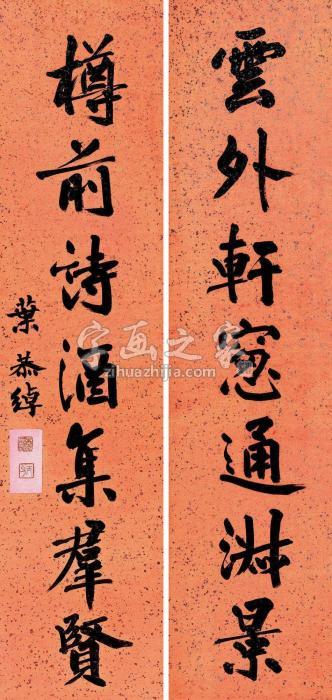 雲外軒窻通淑景
樽前詩酒集羣賢
葉恭綽
字画之家
zihuazhijia.com